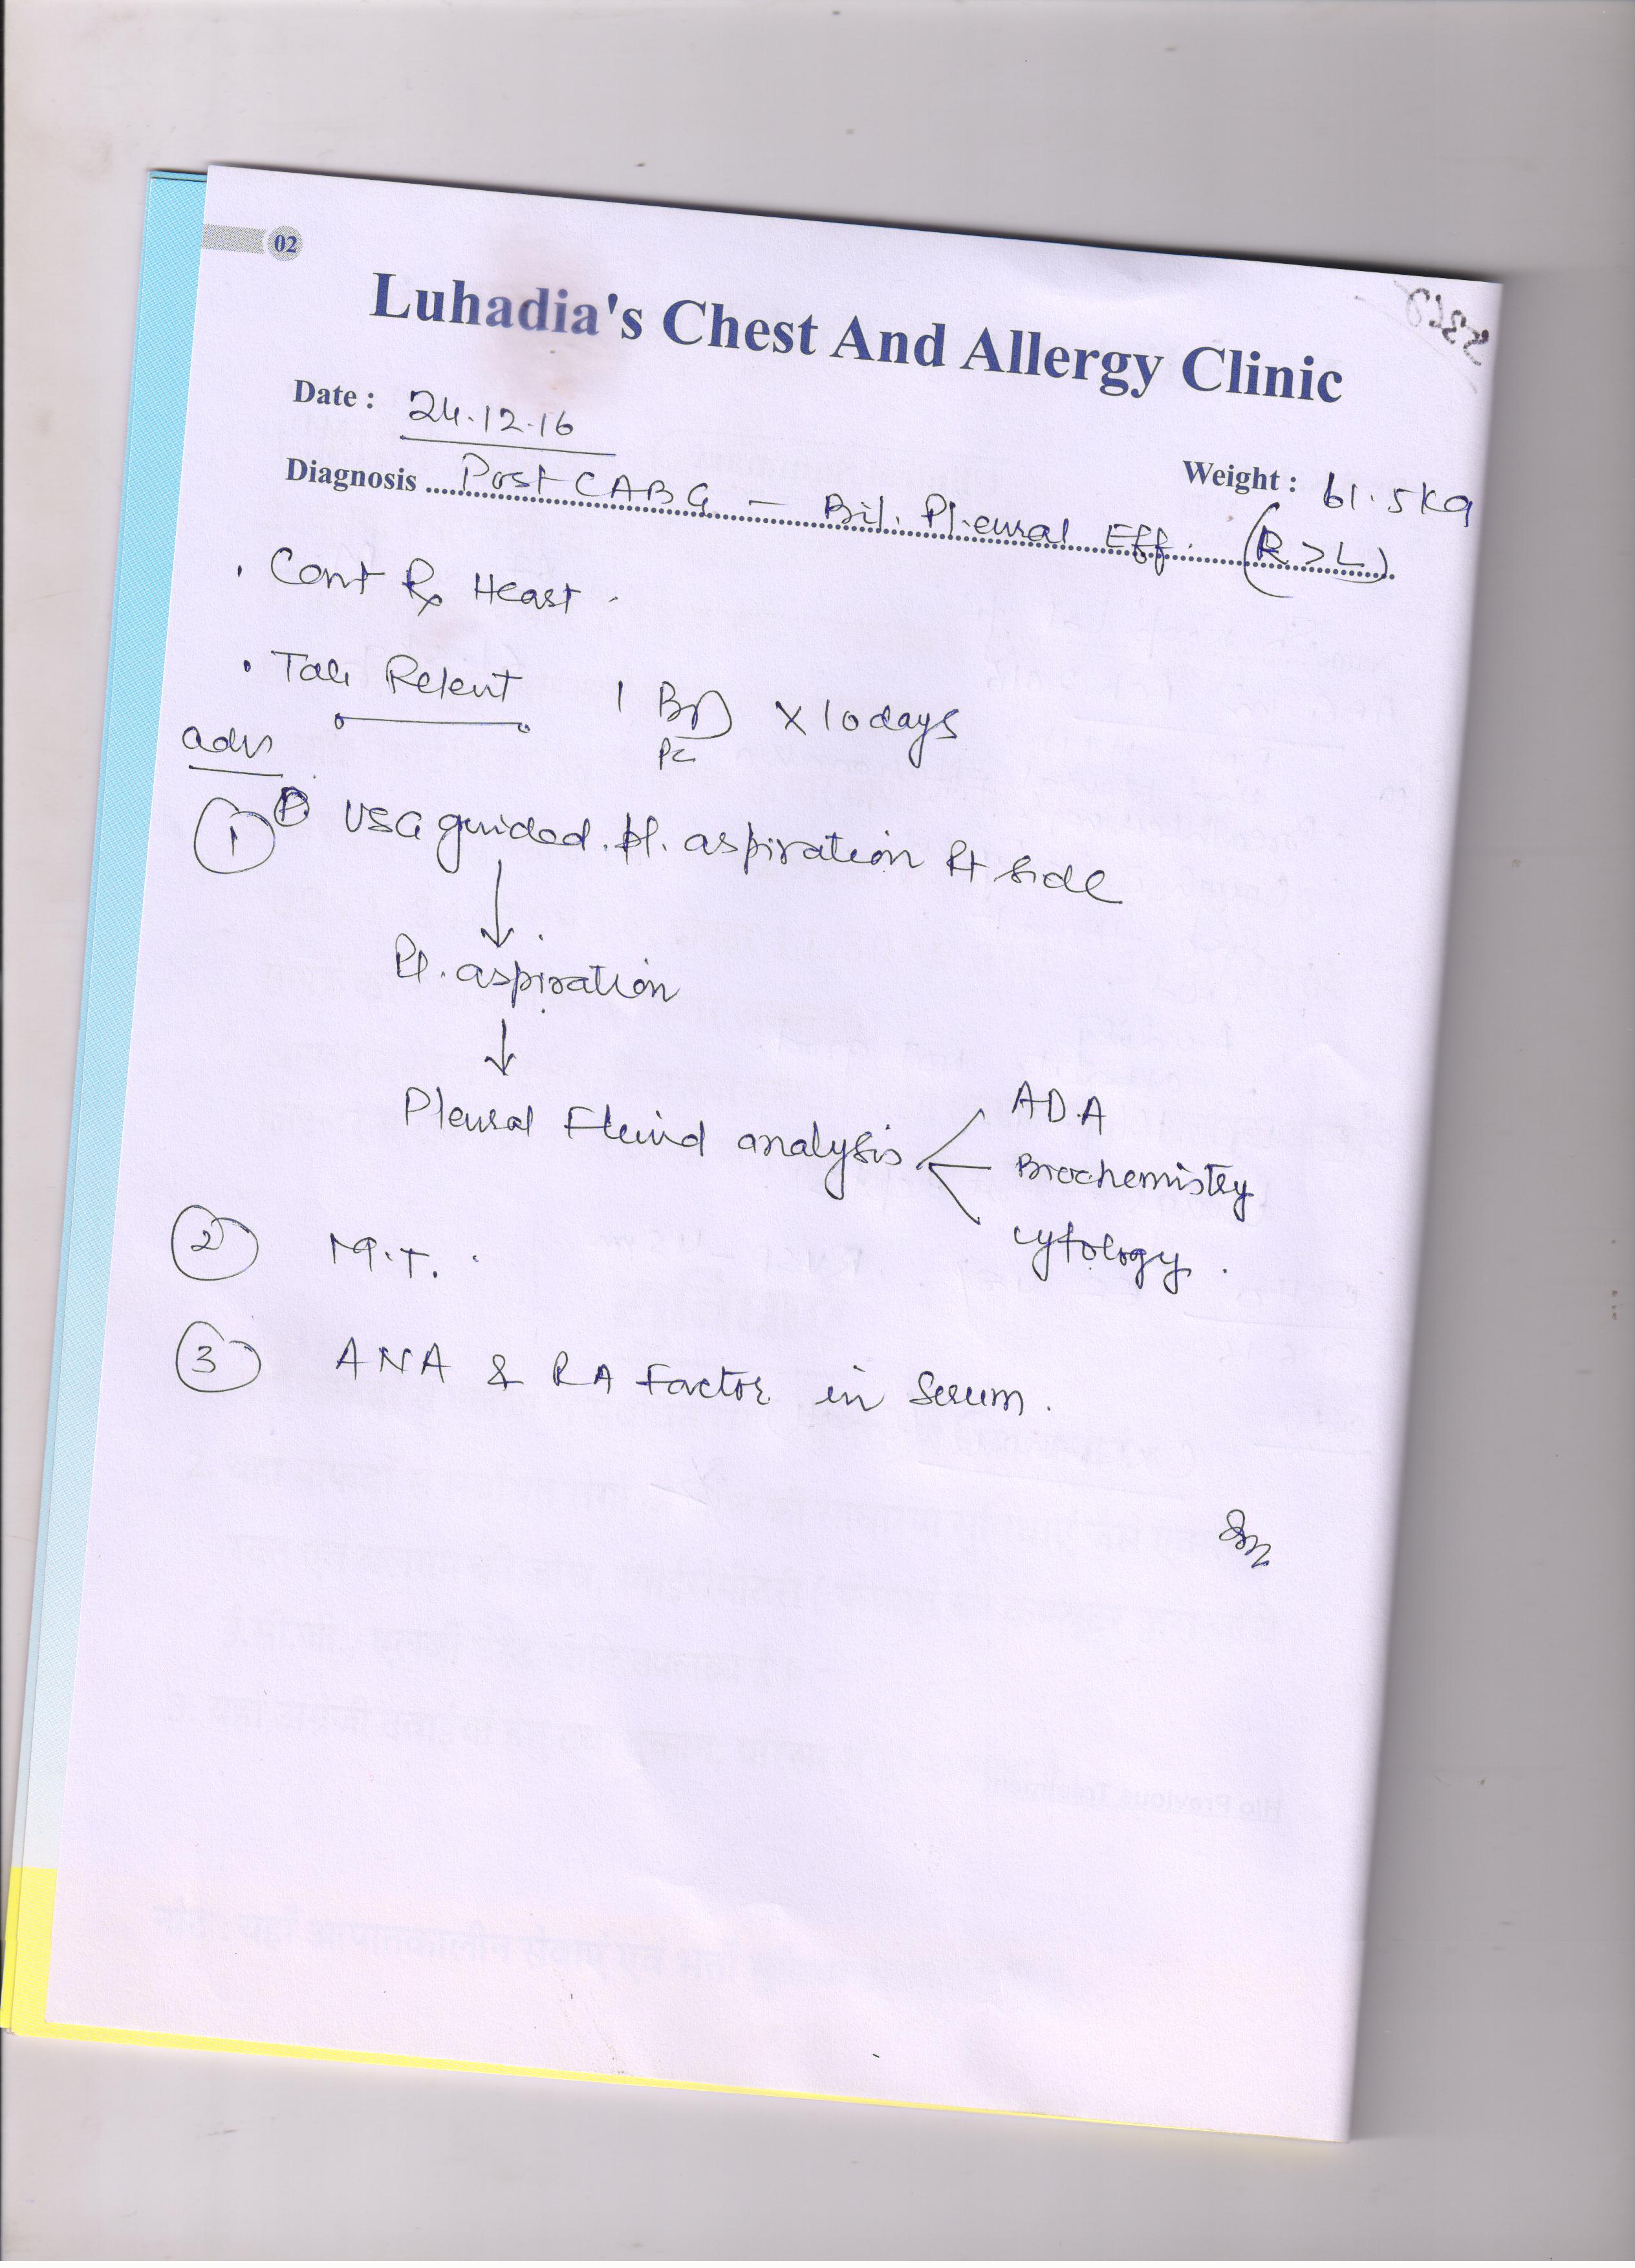 02
Luhadia's Chest And Allergy Clinic
Date : 24.12.16
Weight : 61.5 kg
Diagnosis Post CABG - Bil. Pleural Eff. (R > L)
. Cont Rx Heart.
. Tab Relent 1 BD x 10 days
PC
adv
1 USG guided pl. aspiration Rt side
↓
Pl. aspiration
↓
Pleural Fluid analysis
ADA
Biochemistry
cytology.
2 M.T.
3 ANA & RA Factor in Serum.